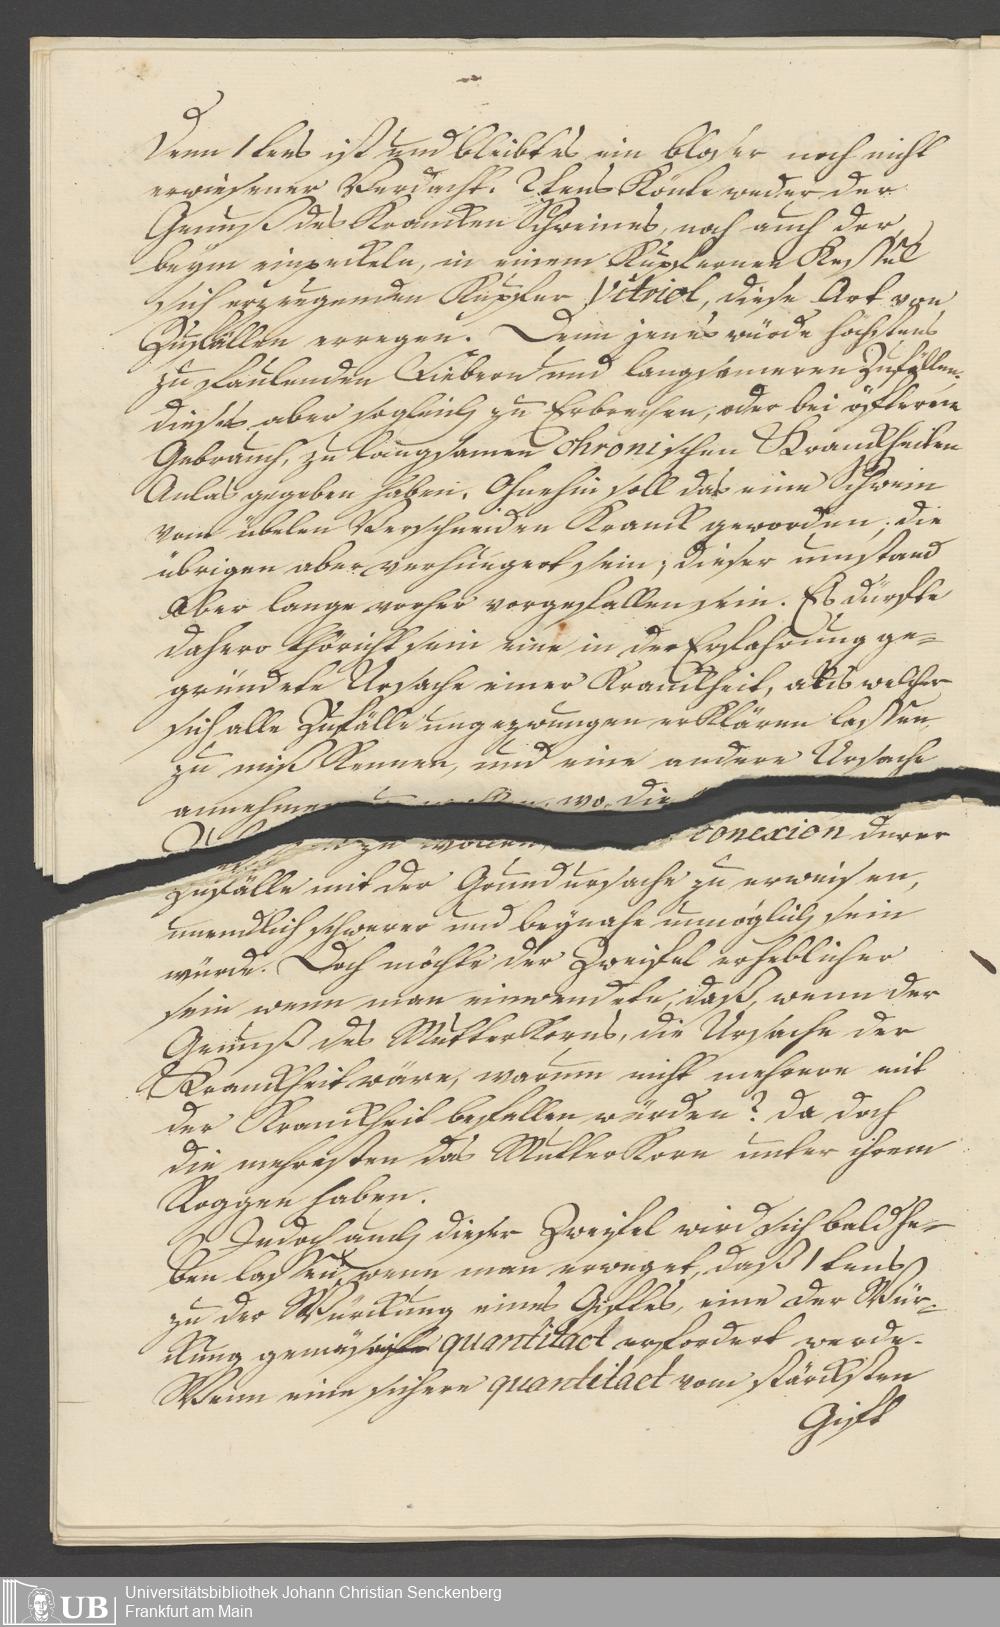 Denn 1tens ist und bleibt es ein bloser noch nicht
erwiesener Verdacht. 2tens Könte weder der
Genuß des Krancken Schweines, noch auch der,
beym einpeckeln, in einem Kupfernen Kessel
sich erzeugenden Kupfer Vitriol, diese Art von
Zufällen erregen. Denn jenes würde höchstens
zu faulenden Fiebern und langsameren Zufällen,
dieses aber sogleich zu Erbrechen, oder bei öfterem
Gebrauch, zu langsamen chronischen Kranckheiten
Anlas gegeben haben. Ohnehin soll das eine Schwein
vom übelen Verschneiden Kranck geworden, die
übrigen aber verhungert sein; dieser umstand
aber lange vorher vorgefallen sein. Es dürfte
dahero thöricht sein eine in der Erfahrung ge-
gründete Ursache einer Kranckheit, aus welcher
sich alle Zufälle ungezwungen erklären lassen,
zu miß Kennen, und eine andere Ursache
annehmen zu wollen, wo die
conexion derer
Zufälle mit der Grundursache zu erweisen,
unendlich schwerer und beynahe unmöglich sein
würde. Doch möchte der Zweifel erheblicher
sein wenn man einwendete, daß, wenn der
Genuß des Mutterkorns, die Ursache der
Kranckheit wäre, warum nicht mehrere mit
der Kranckheit befallen würden? da doch
die mehresten das Mutterkorn unter ihrem
Roggen haben.
Jedoch auch dieser Zweifel wird sich bald he-
ben lassen, wenn man erweget, daß 1tens
zu der Würckung eines Giftes, eine der Wür-
ckung gemäse quantitaet erfordert werde.
Wenn eine sichere quantitaet vom stärcksten
Gift
Universitätsbibliothek Johann Christian Senckenberg
Frankfurt am Main
UB